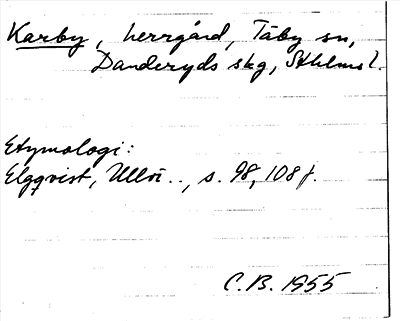 Karby, herrgård, Täby sn,
Danderyds skg, Sthlms l.
Etymologi:
Elgqvist, Ullvi.., s. 98, 108 f.
C.B. 1955